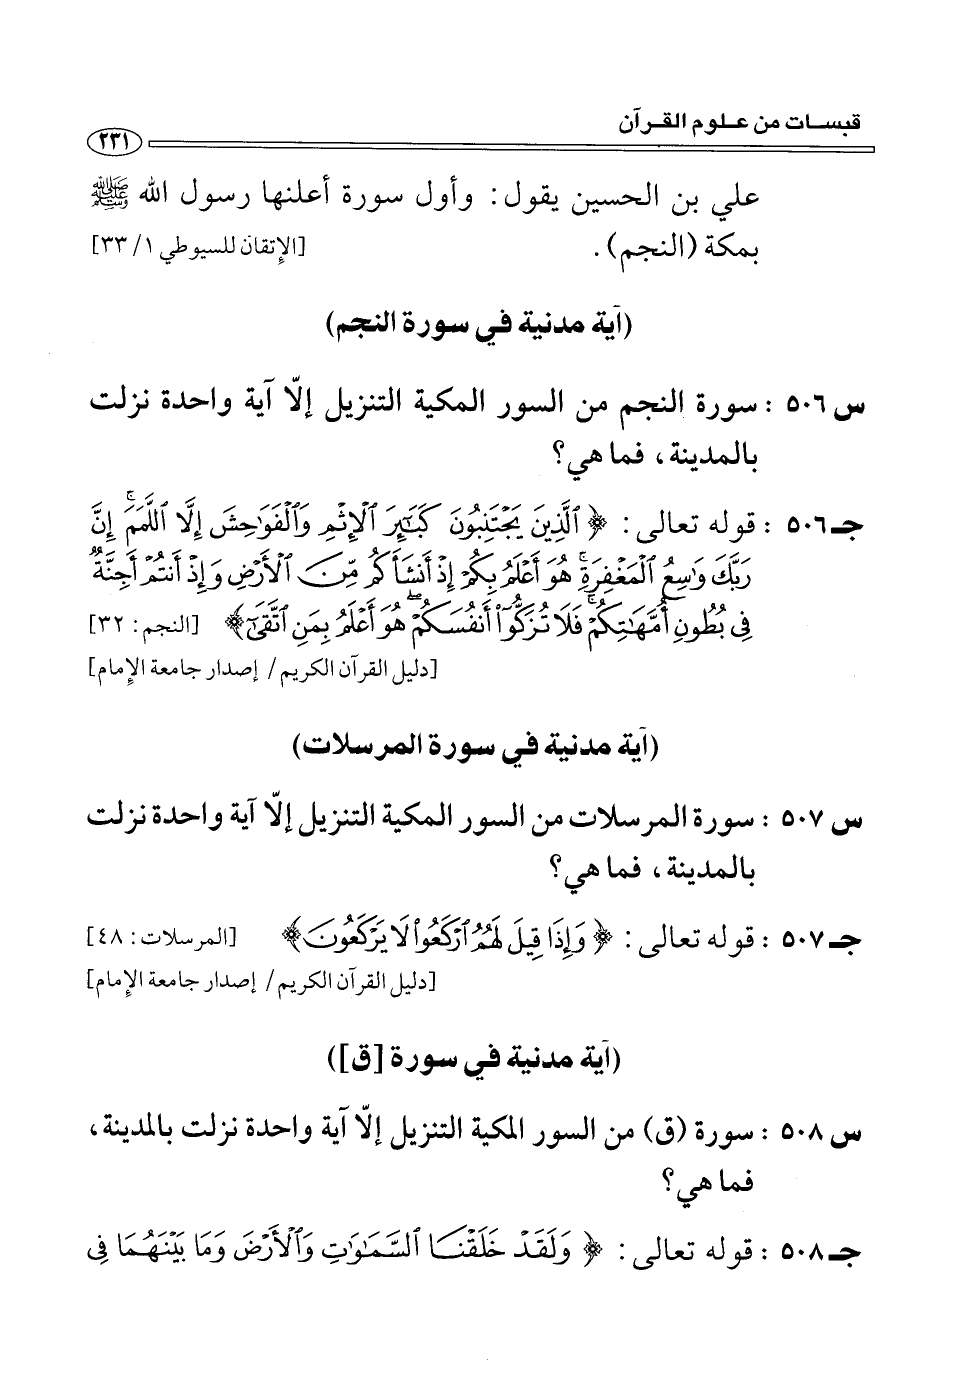 قبسات من علوم القرآن
٢٣١
علي بن الحسين يقول: وأول سورة أعلنها رسول الله ﷺ
بمكة (النجم). [الإتقان للسيوطي ١/ ٣٣]
(آية مدنية في سورة النجم)
س ٥٠٦ : سورة النجم من السور المكية التنزيل إلّا آية واحدة نزلت
بالمدينة، فما هي؟
جـ ٥٠٦ : قوله تعالى: ﴿ ٱلَّذِينَ يَجْتَنِبُونَ كَبَٰٓئِرَ ٱلْإِثْمِ وَٱلْفَوَٰحِشَ إِلَّا ٱللَّمَمَ ۚ إِنَّ
رَبَّكَ وَٰسِعُ ٱلْمَغْفِرَةِ ۚ هُوَ أَعْلَمُ بِكُمْ إِذْ أَنشَأَكُم مِّنَ ٱلْأَرْضِ وَإِذْ أَنتُمْ أَجِنَّةٌ
فِى بُطُونِ أُمَّهَٰتِكُمْ ۖ فَلَا تُزَكُّوٓا۟ أَنفُسَكُمْ ۖ هُوَ أَعْلَمُ بِمَنِ ٱتَّقَىٰٓ ﴾ [النجم: ٣٢]
[دليل القرآن الكريم/ إصدار جامعة الإمام]
(آية مدنية في سورة المرسلات)
س ٥٠٧ : سورة المرسلات من السور المكية التنزيل إلّا آية واحدة نزلت
بالمدينة، فما هي؟
جـ ٥٠٧ : قوله تعالى: ﴿ وَإِذَا قِيلَ لَهُمُ ٱرْكَعُوا۟ لَا يَرْكَعُونَ ﴾ [المرسلات: ٤٨]
[دليل القرآن الكريم/ إصدار جامعة الإمام]
(آية مدنية في سورة [ق])
س ٥٠٨ : سورة (ق) من السور المكية التنزيل إلّا آية واحدة نزلت بالمدينة،
فما هي؟
جـ ٥٠٨ : قوله تعالى: ﴿ وَلَقَدْ خَلَقْنَا ٱلسَّمَٰوَٰتِ وَٱلْأَرْضَ وَمَا بَيْنَهُمَا فِى